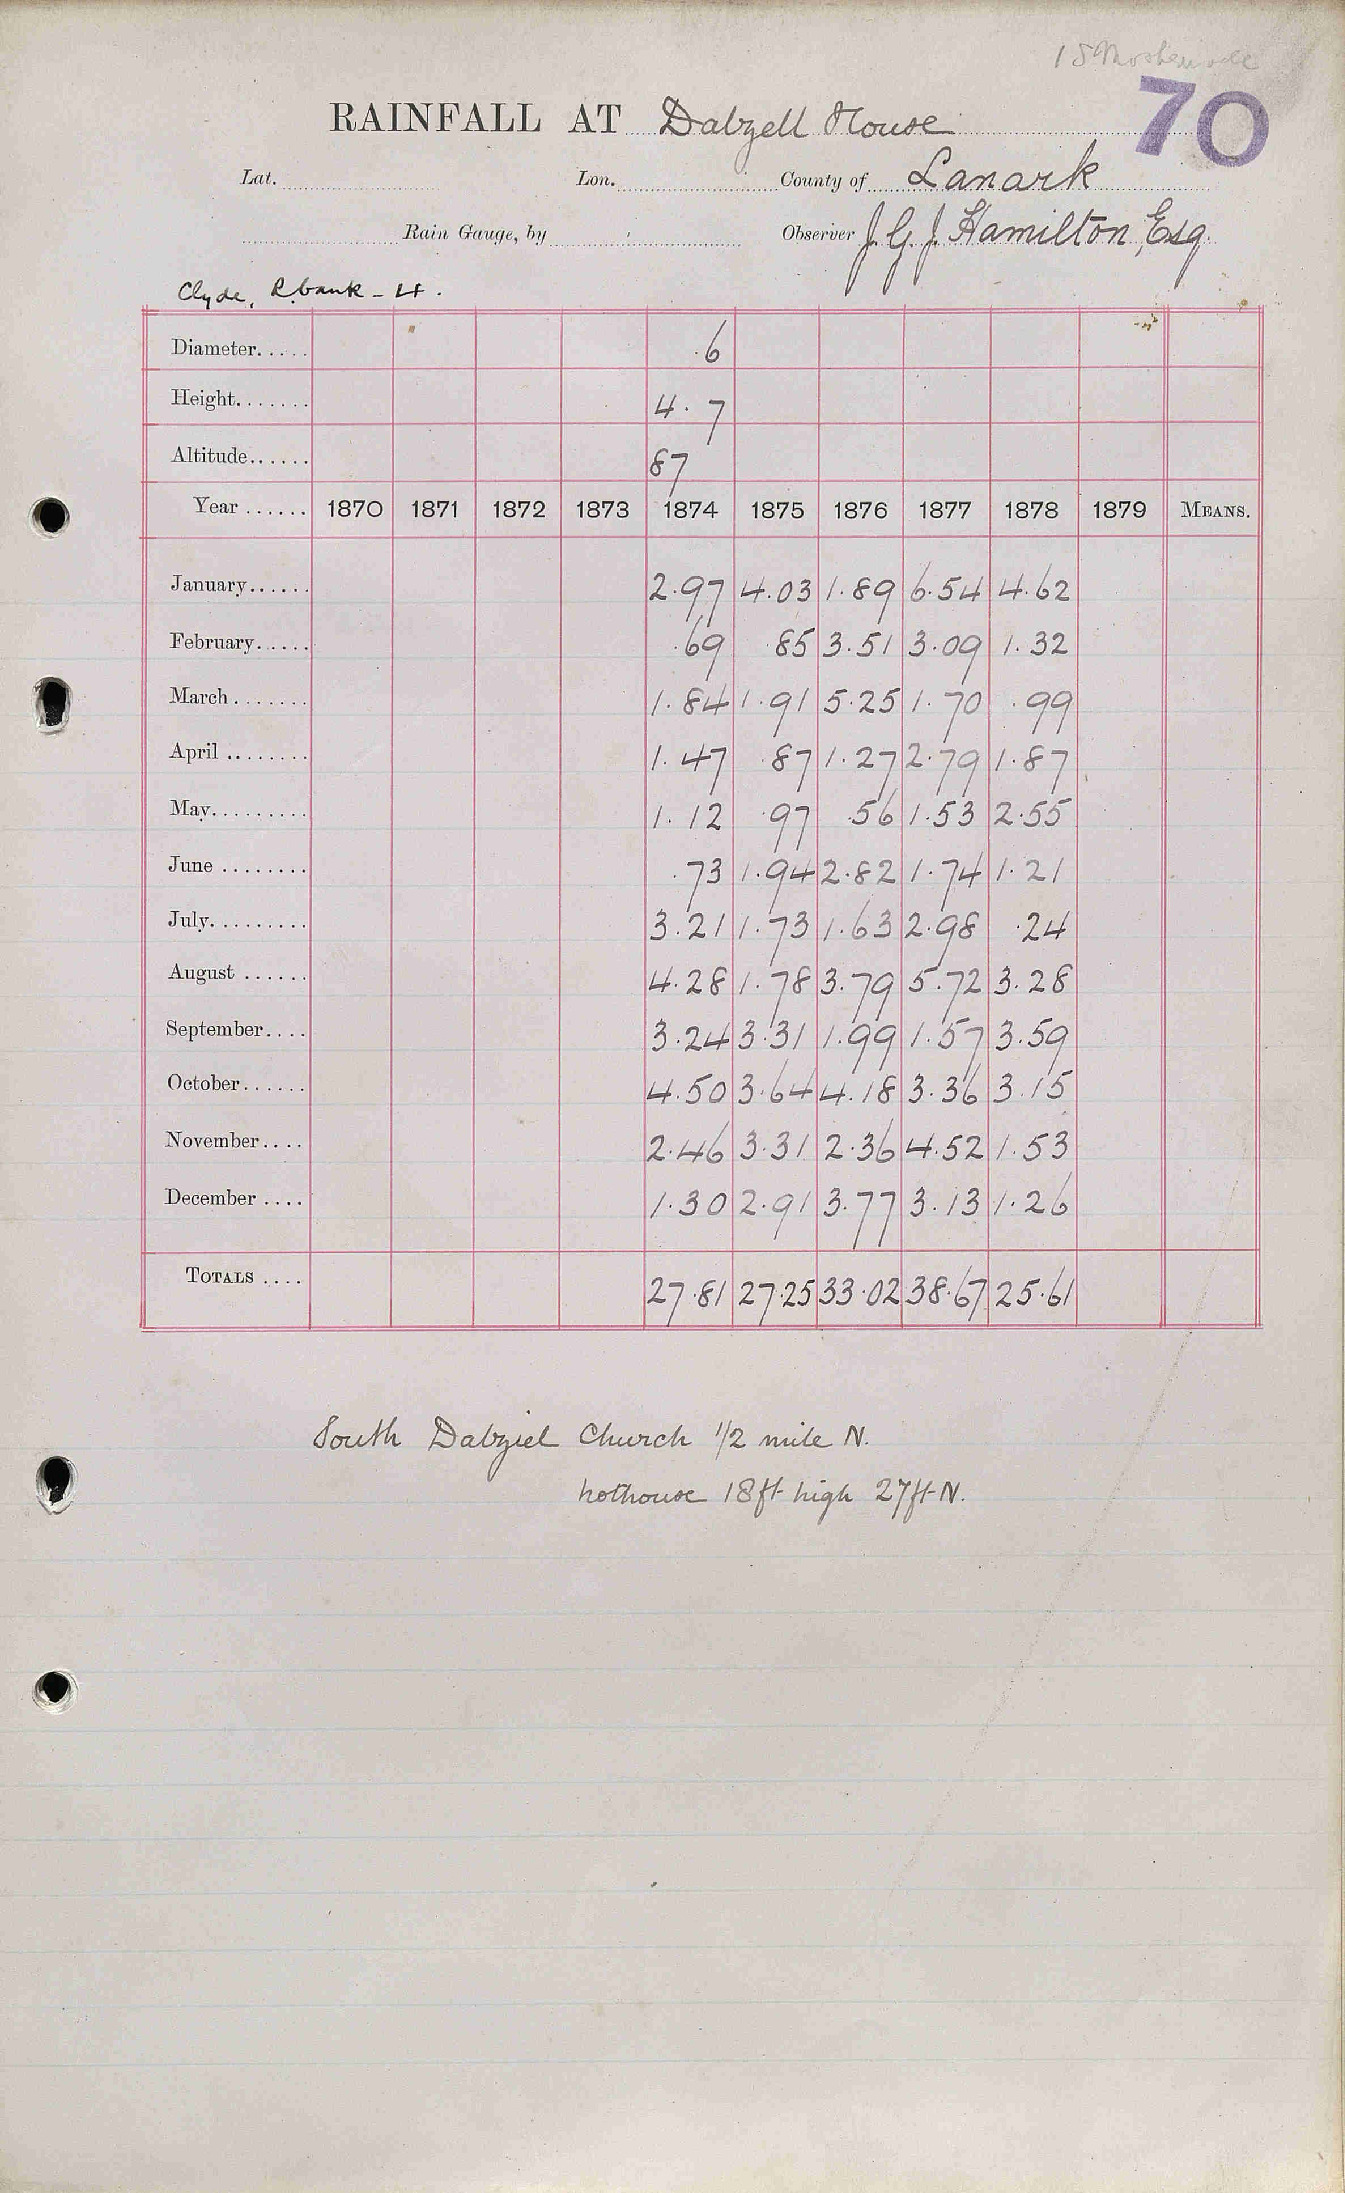 15 Motherwell
70
RAINFALL AT Dalzell House
Lat. Lon. County of Lanark
Rain Gauge, by Observer J. G. J. Hamilton, Esq.
Clyde, R. bank - 4.
Diameter..... .6
Height....... 4.7
Altitude...... 87
Year ...... 1870 1871 1872 1873 1874 1875 1876 1877 1878 1879 MEANS.
January...... 2.97 4.03 1.89 6.54 4.62
February..... .69 .85 3.51 3.09 1.32
March ....... 1.84 1.91 5.25 1.70 .99
April ........ 1.47 .87 1.27 2.79 1.87
May......... 1.12 .97 .56 1.53 2.55
June ........ .73 1.94 2.82 1.74 1.21
July......... 3.21 1.73 1.63 2.98 .24
August ...... 4.28 1.78 3.79 5.72 3.28
September.... 3.24 3.31 1.99 1.57 3.59
October...... 4.50 3.64 4.18 3.36 3.15
November.... 2.46 3.31 2.36 4.52 1.53
December .... 1.30 2.91 3.77 3.13 1.26
TOTALS .... 27.81 27.25 33.02 38.67 25.61
South Dalziel Church 1/2 mile N.
hothouse 18ft high 27ft N.